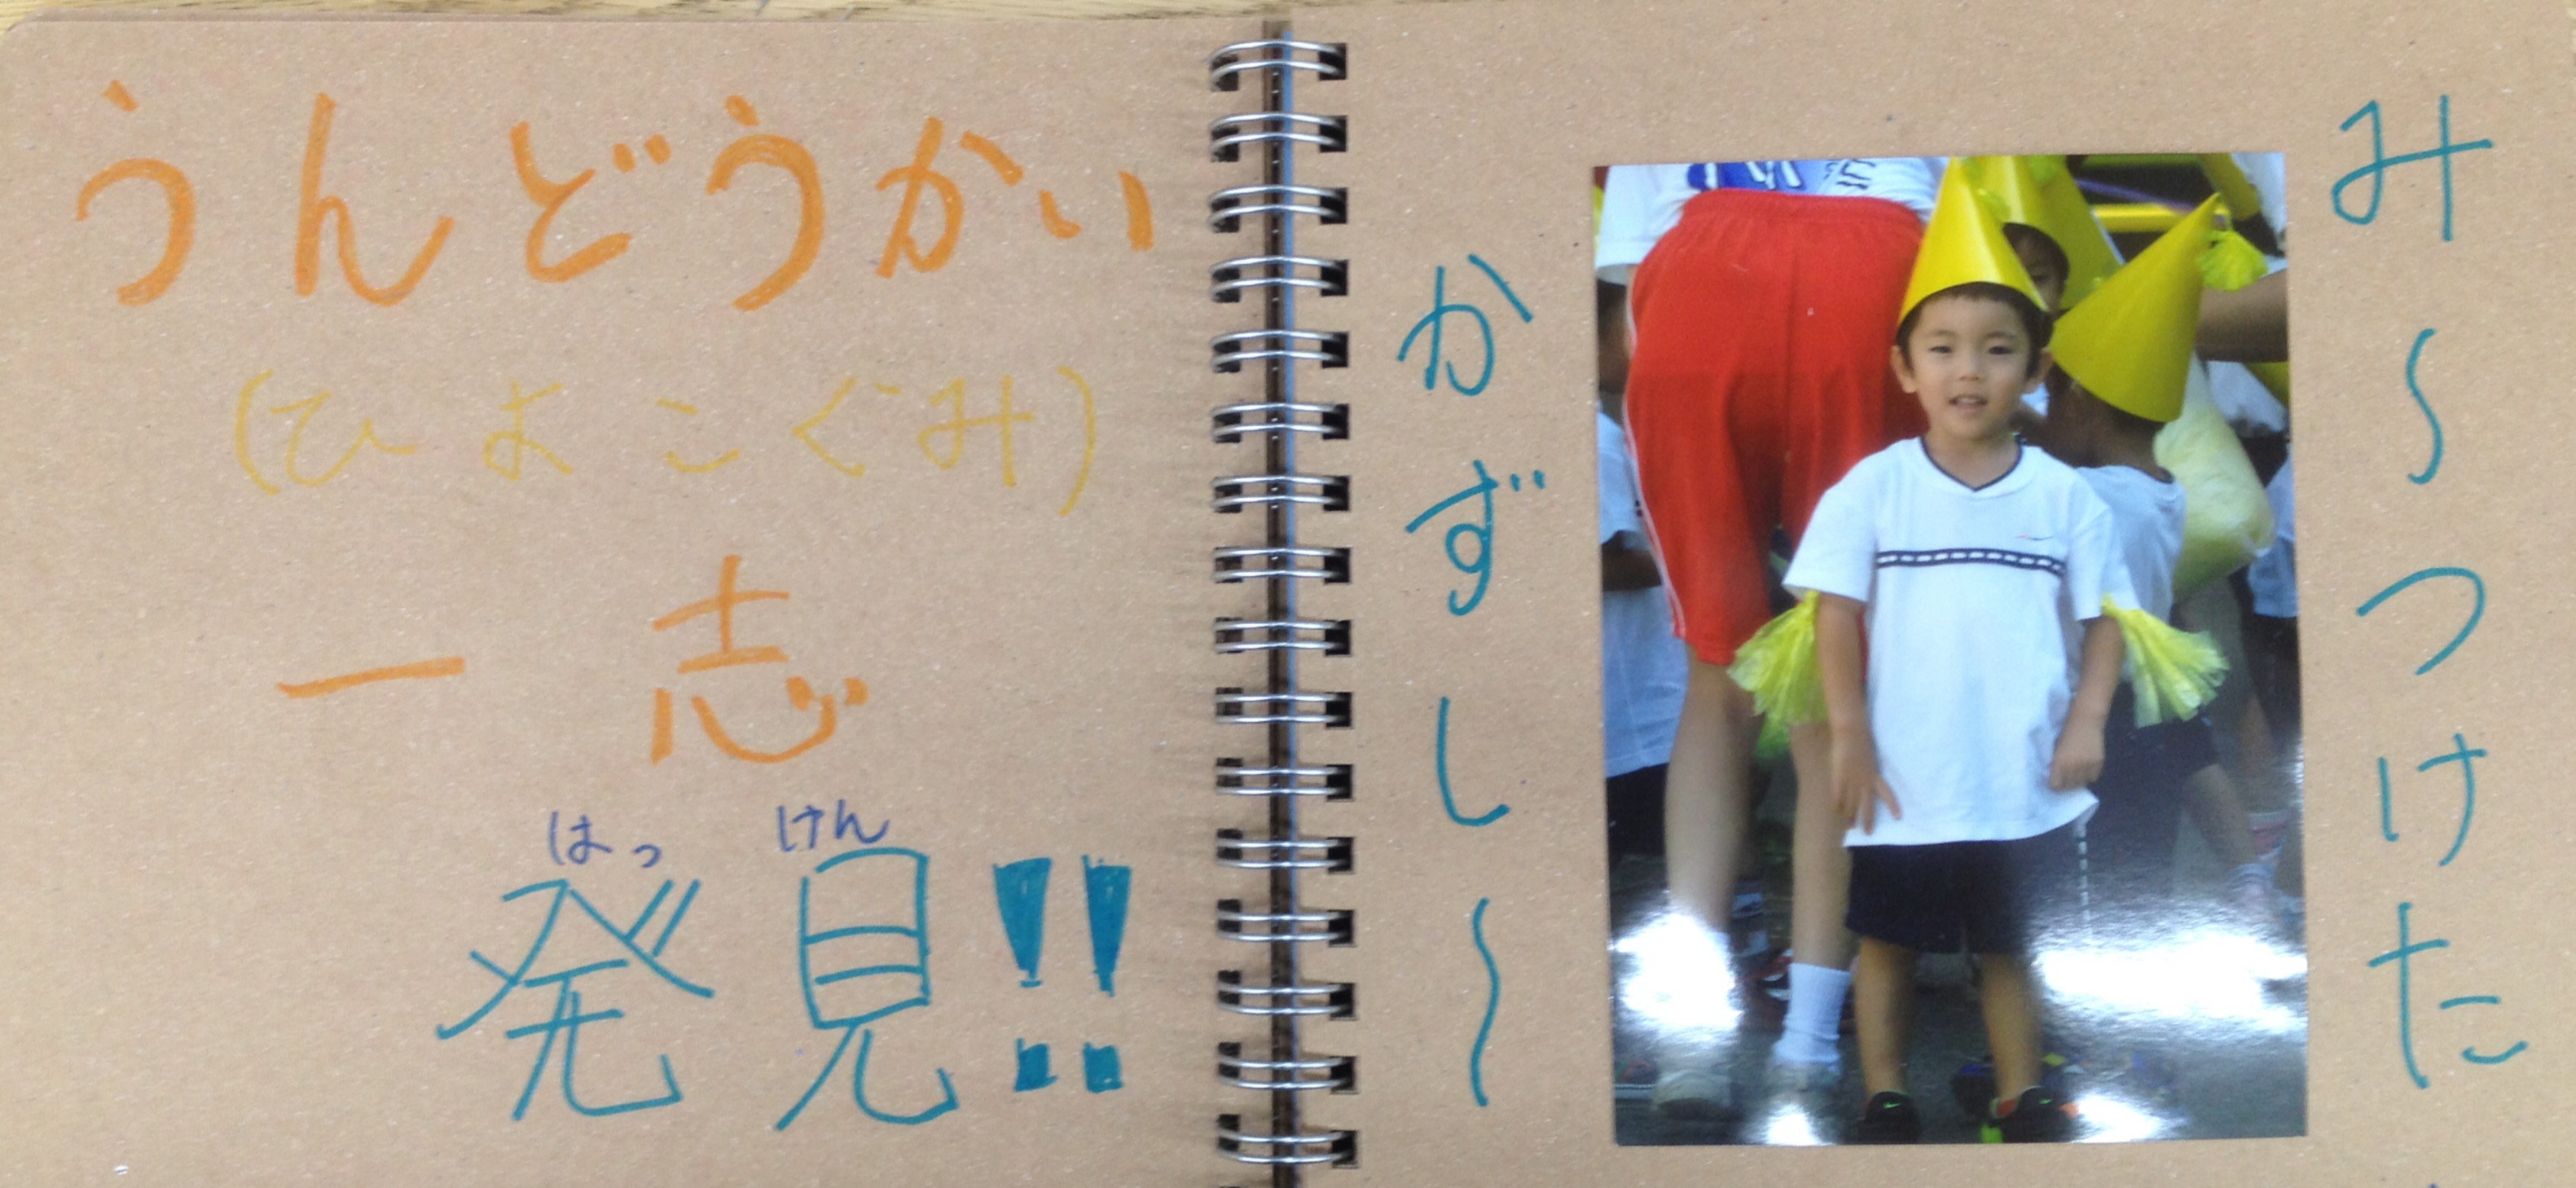 うんどうかい
(ひよこぐみ)
一志
はっけん
発見!!
み〜つけた
かずし〜